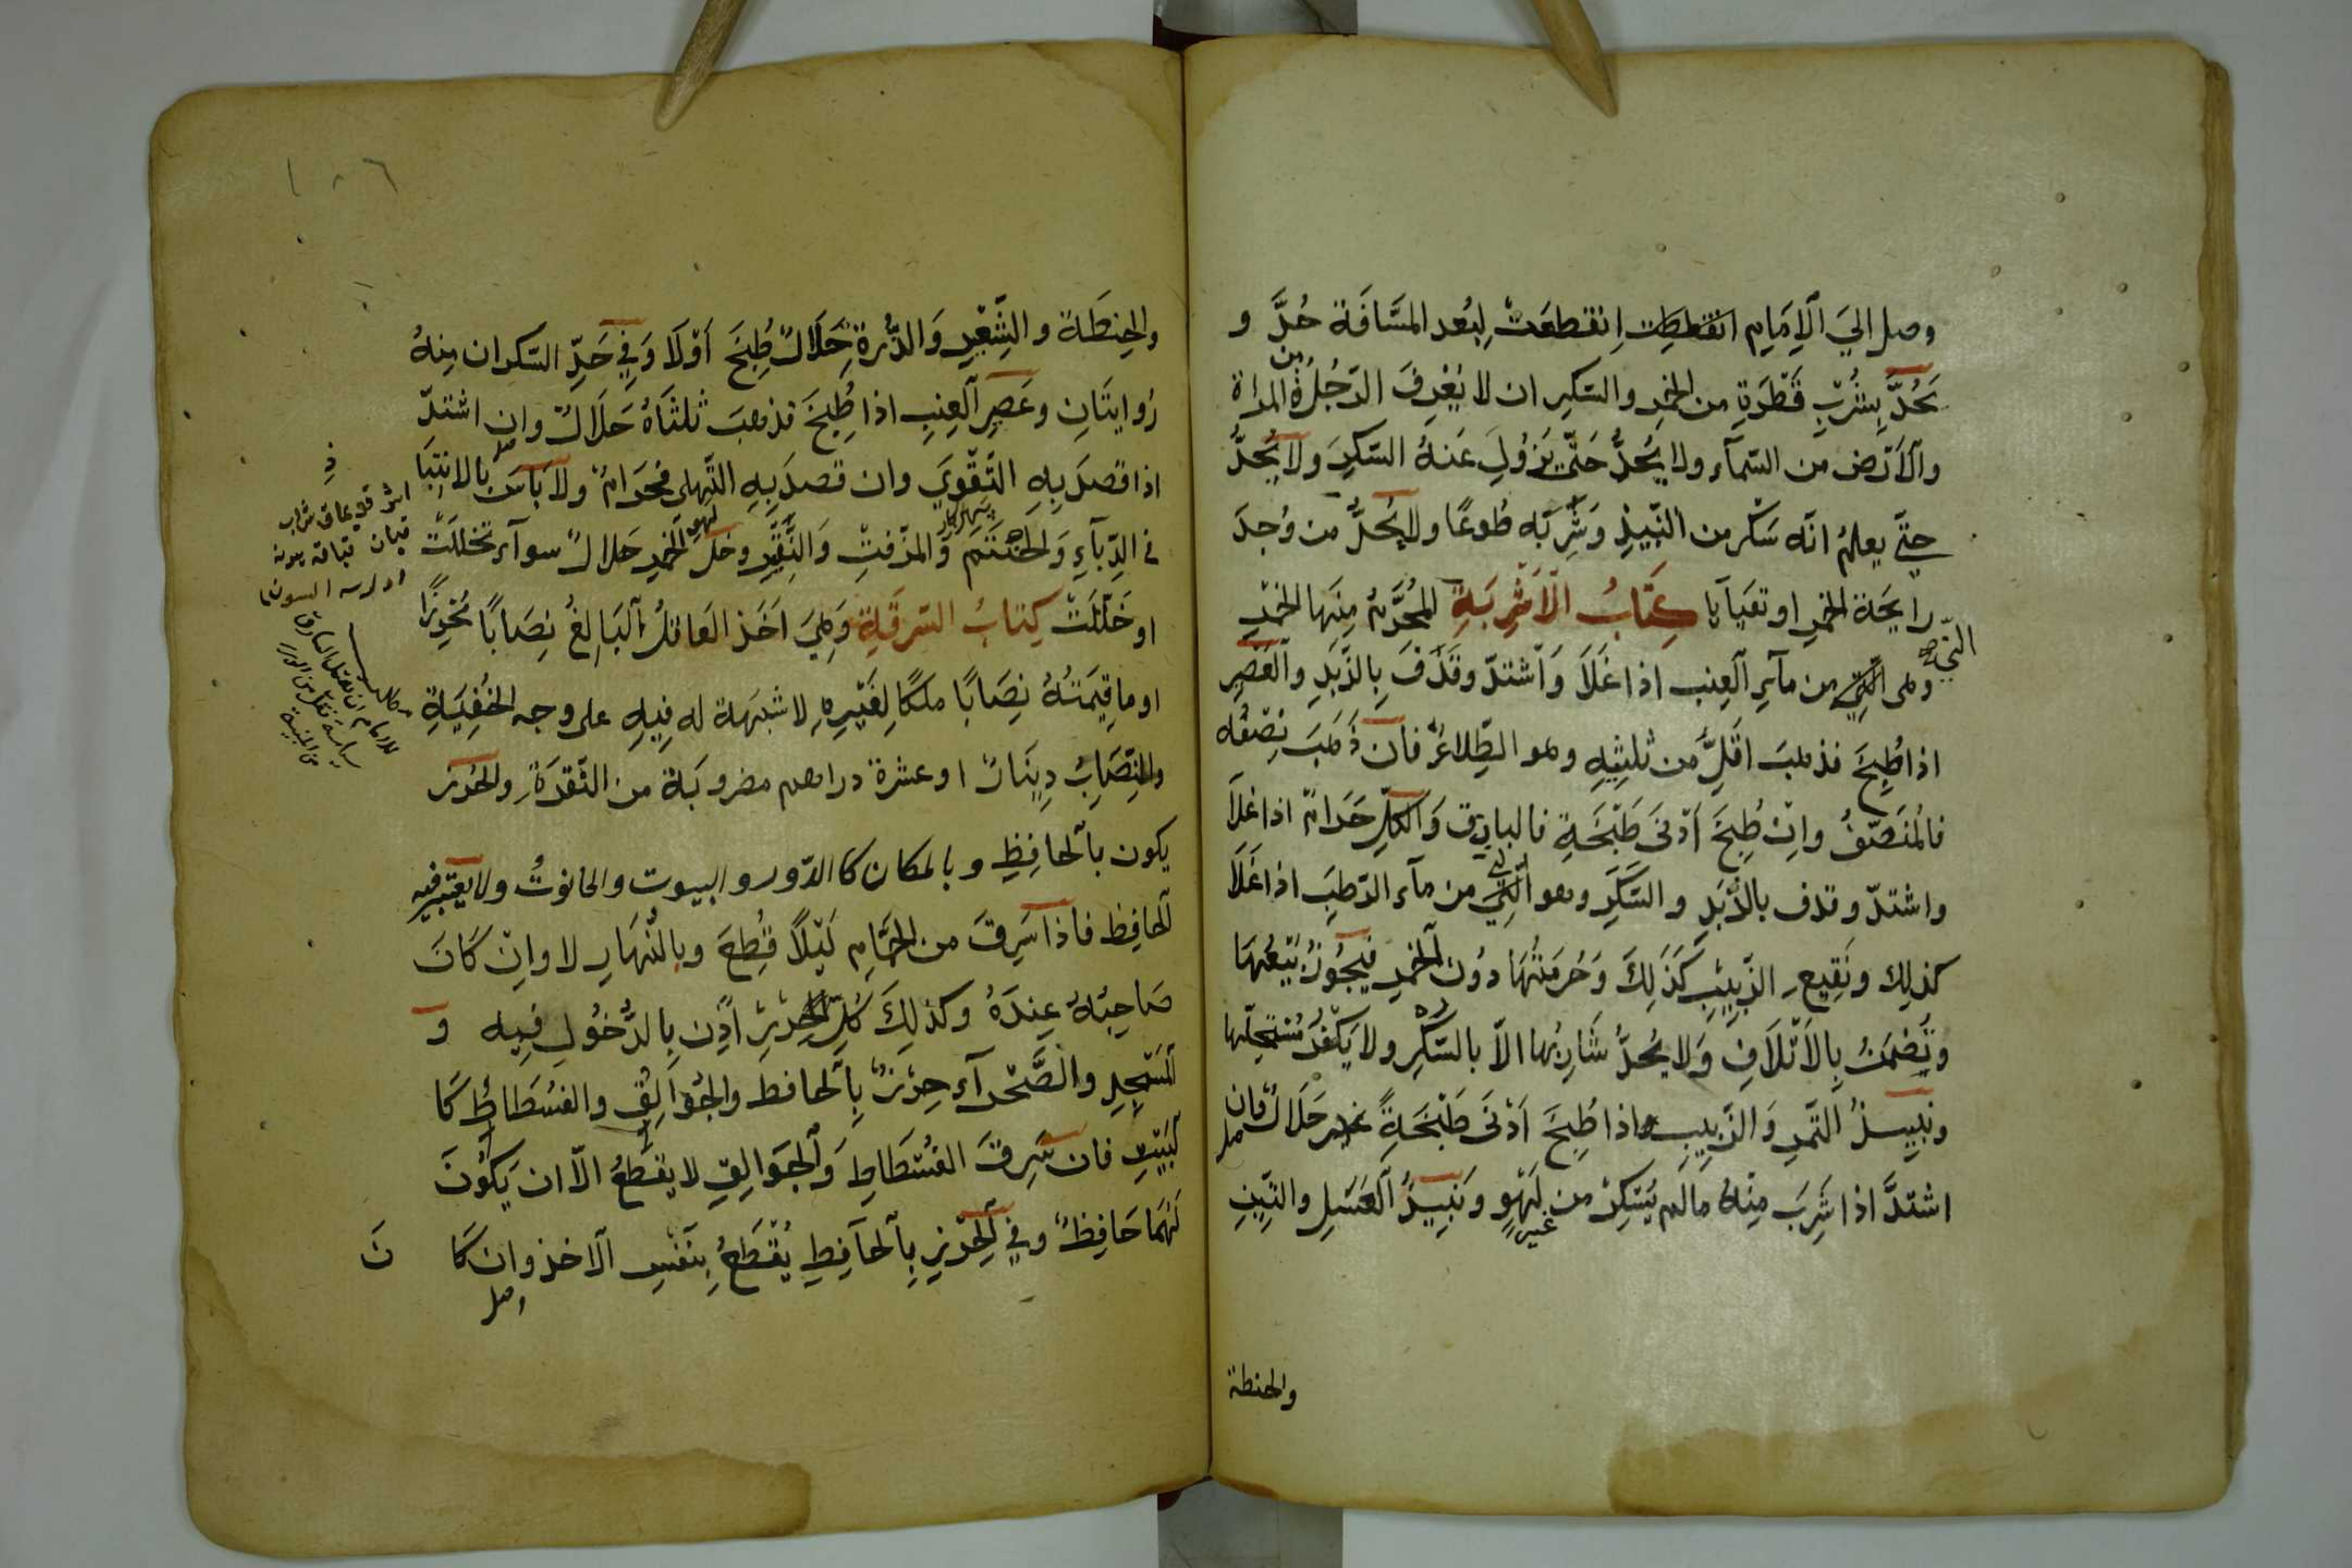 وصل الي الامام انقطعت لبعد المسافة حدّ و
يحدّ بشرب قطرة من الخمر والسكر ان لا يعرف الرجل من المراة
والارض من السماء ولا يحدّ حتّى يزول عنه السكر ولا يحدّ
حتّي يعلم انّه سكر من النبيذ وشربه طوعًا ولا يحدّ من وجد
رايحة الخمر او تقيأ يا كتاب الاشربة المحرّم منها الخمر
وهى النّي من ماء العنب اذا غلا واشتدّ وقذف بالزّبد والعصير
النّي
اذا طبخ فذهب اقلّ من ثلثيه وهو الطّلاء فان ذهب نصفه
فالمنصّف وان طبخ ادنى طبخة فالباذق والكلّ حرام اذا غلا
واشتدّ وقذف بالزّبد والسّكر وهو النّي من ماء الرّطب اذا غلا
كذلك ونقيع الزّبيب كذلك وحرمتها دون الخمر فيجوز بيعها
وتضمن بالاتلاف ولا يحدّ شاربها الاّ بالسّكر ولا يكفر مستحلّها
ونبيذ التّمر والزّبيب اذا طبخ ادنى طبخة حلال فان
اشتدّ اذا شرب منه ما لم يسكر من غير لهو ونبيذ العسل والتّين
والحنطة
١٠٦
والحنطة والشّعير والذّرة حلال طبخ اولا وفي حدّ السكران منه
روايتان وعصير العنب اذا طبخ فذهب ثلثاه حلال وان اشتدّ
اذا قصد به التّقوي وان قصد به التّلهى فحرام ولا باس بالانتبا
في الدّباء والحنتم والمزفت والنّقير وخلّ الخمر حلال سواء تخلّلت
او خلّلت كتاب السّرقة وهي اخذ العاقل البالغ نصابًا محرزًا
او ما قيمته نصابًا ملكًا لغيره لا شبهة له فيه على وجه الخفية
والنّصاب دينار او عشرة دراهم مضروبة من النّقرة والحرز
يكون بالحافظ وبالمكان كالدّور والبيوت والحانوت ولا يعتبر فيه
الحافظ فاذا سرق من الحمّام ليلاً قطع وبالنّهار لا وان كان
صاحبه عنده وكذلك كلّ حرز اذن بالدّخول فيه و
المسجد والصّحراء حرز بالحافظ والجوالق والفسطاط كا
لبيت فان سرق الفسطاط والجوالق لا يقطع الاّ ان يكون
لهما حافظ وفي الحرز بالحافظ يقطع بنفس الاخذ وان كا ن
للامام ان يقتل السارق
سياسة نقل من الدرر
من المنية